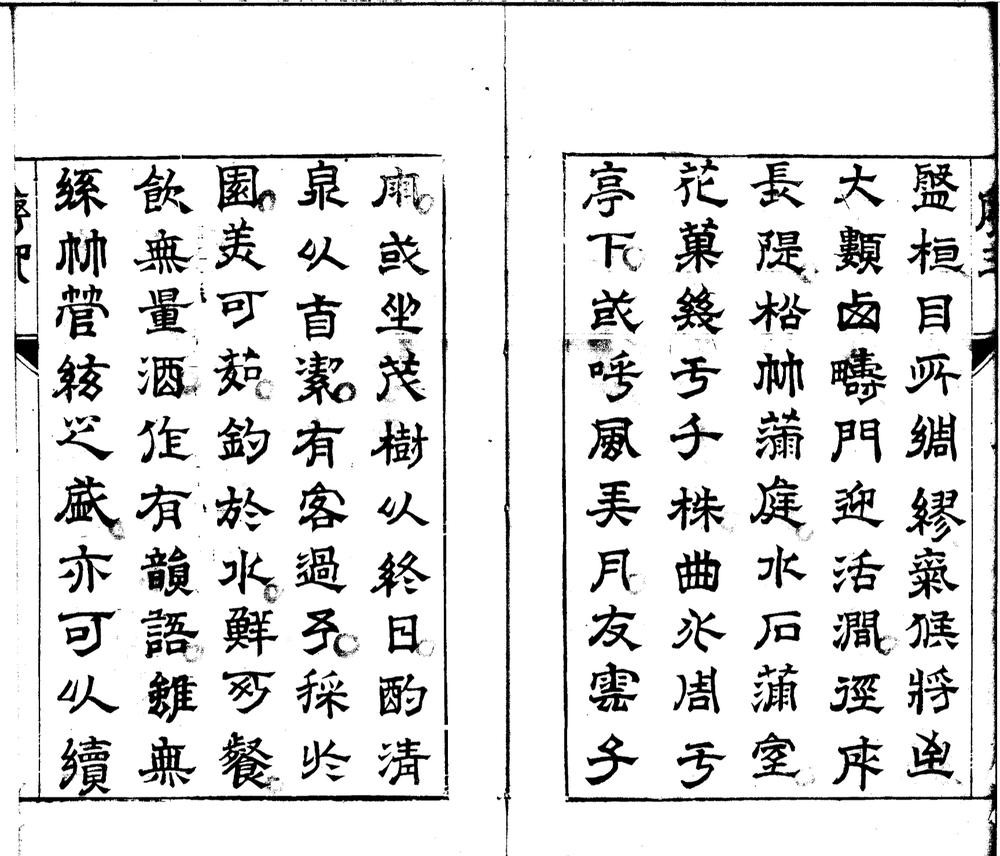 盤桓目所綢繆氣候將
大西疇門迎活澗徑
長隄松竹滿庭水石滿室
花菓幾于千株曲水周于
亭下或呼風弄月友雲子
雨或坐茂樹以終日酌清
泉以自潔有客過予採於
園美可茹釣於水鮮可餐
飲無量酒作有韻語雖無
絲竹管絃之盛亦可以續